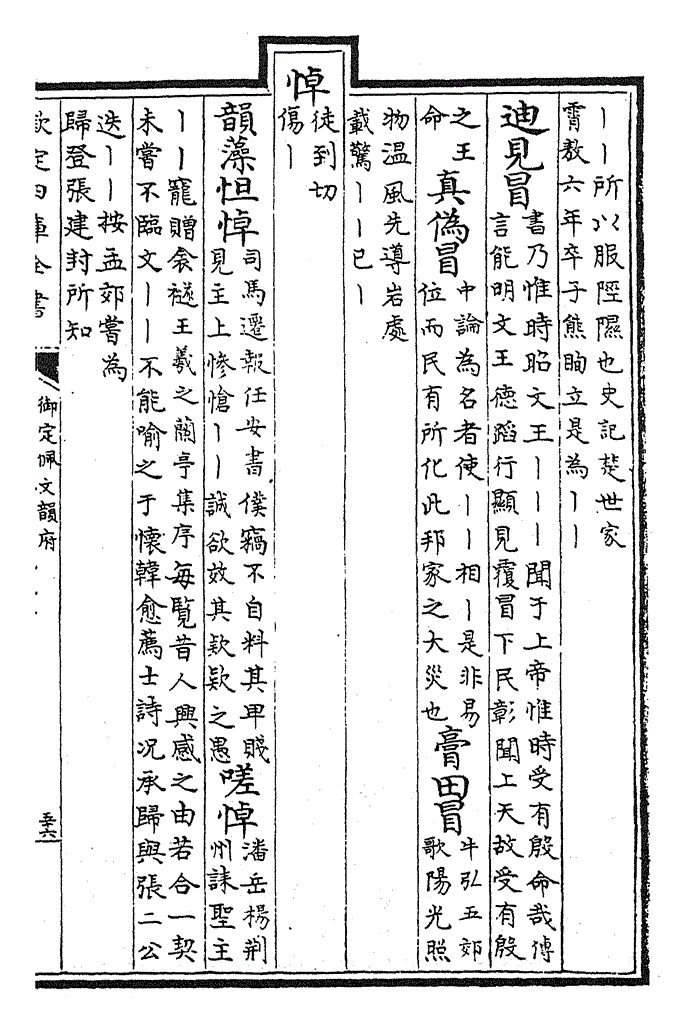 丨丨所以服陘隰也史記楚世家
霄敖六年卒子熊眴立是為丨丨
迪見冒
書乃惟時昭文王丨丨丨聞于上帝惟時受有殷命哉傳
言能明文王德蹈行顯見覆冒下民彰聞上天故受有殷
之王
命
真偽冒
中論為名者使丨丨相丨是非易
位而民有所化此邦家之大災也
膏田冒
牛弘五郊
歌陽光照
物温風先導岩處
載驚丨丨已丨
悼
徒到切
傷丨
韻藻怛悼
司馬遷報任安書僕竊不自料其卑賤
見主上慘愴丨丨誠欲效其欵欵之愚
嗟悼
潘岳楊荆
州誄聖主
丨丨寵贈衾襚王羲之蘭亭集序每覧昔人興感之由若合一契
未嘗不臨文丨丨不能喻之于懷韓愈薦士詩况承歸與張二公
迭丨丨按孟郊嘗為
歸登張建封所知
欽定四庫全書
御定佩文韻府
五十六